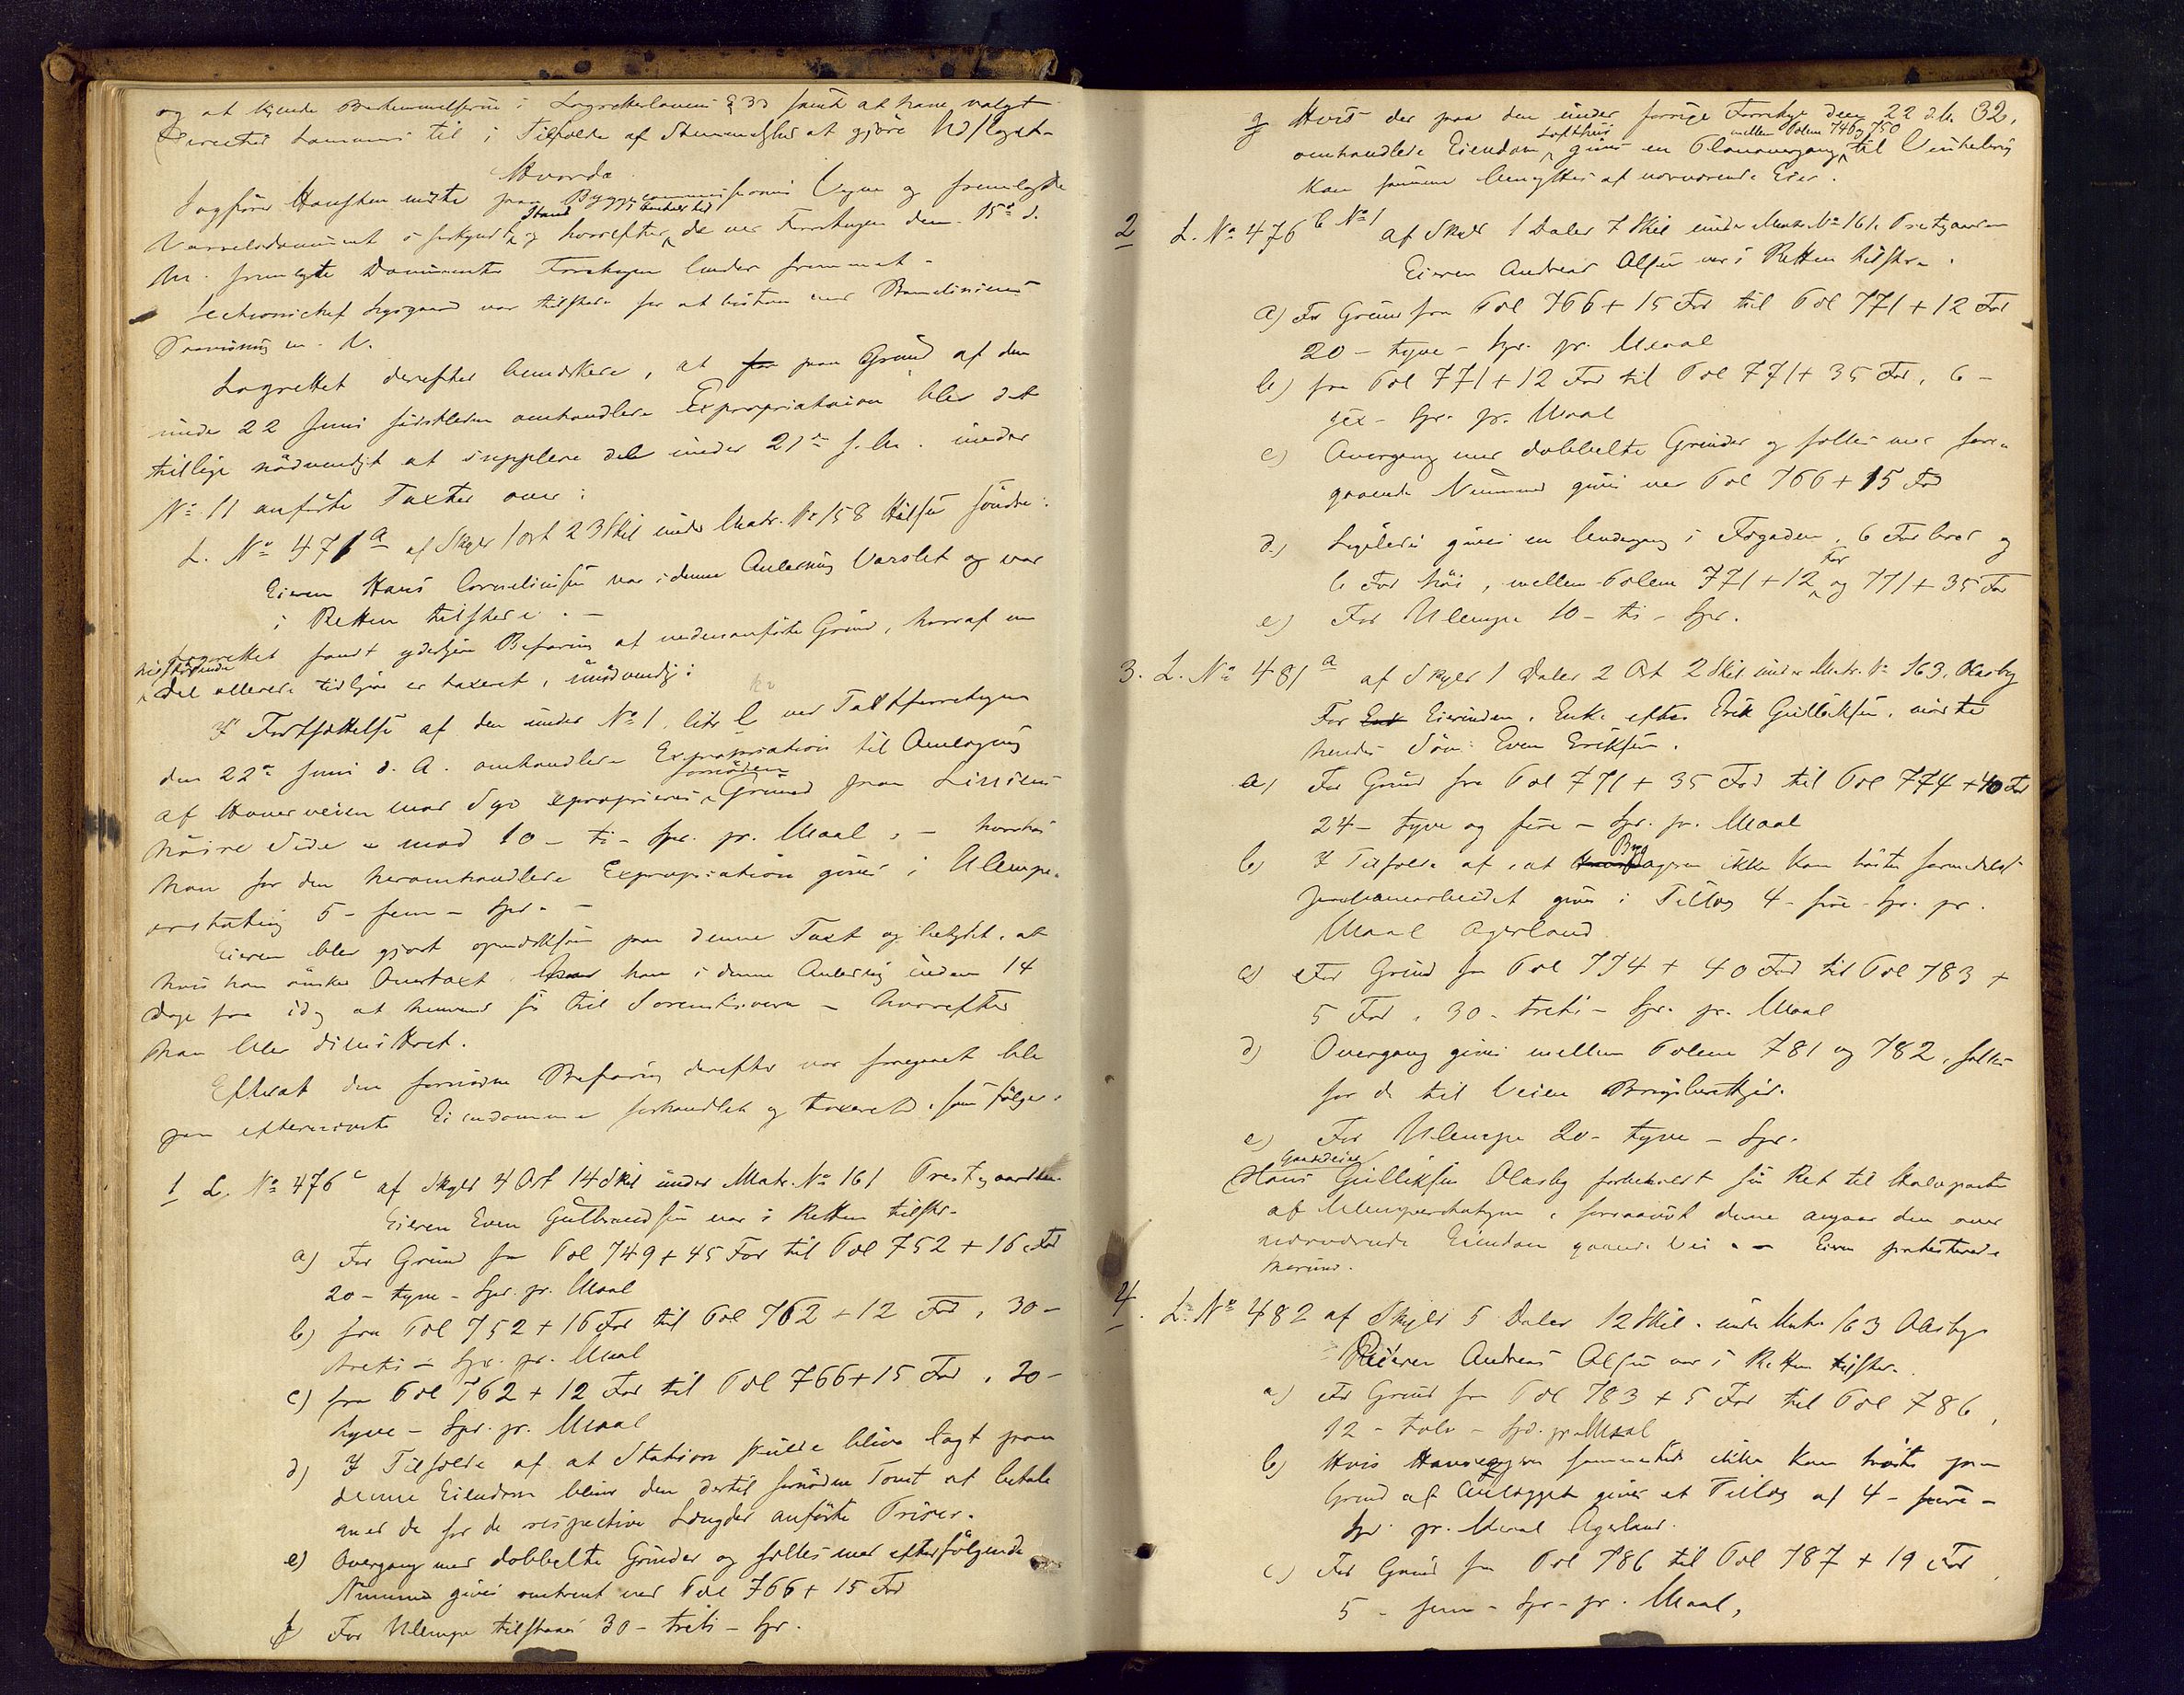 og at kjende Bestemmelserne i Lagrettelovens § 33 samt at have valgt
til i Tilfælde af Stemmelighed at gjøre Udslaget.
Hvorda
Sagfører Hansken mødte paa Byggecommissionens Vegne og fremlagde
Varselsdocument i forkyndt Stand og hvorefter ved Forretningen den 15de d.
M. fremlagte Documenter Forretningen fremmet.
Sectionschef Lysgaard var tilstede for at bistaa med Banelinjens
Paavisning m. V.
Lagrettet derefter bemærkede, at paa Grund af den
under 22 Juni sidstleden omhandlede Expropriation blev det
tillige nødvendigt at supplere det under 21de f. M. under
No 11 anførte Taxter over:
L. No 471a af Skyld 1 Ort 23 Skil under Matr. No 158 Søndre:
Eieren Hans Corneliussen var i denne Anledning Varslet og var
i Retten tilstede. –
Lagrettet fandt yderligere Befaring af nedenanførte Grund, hvoraf en
hidhørende
Del allerede tidligere er taxeret, unødvendig:
I Fortsættelse af den under No 1, litr b ved Taxtforretningen
den 22de Juni d. A. omhandlede Expropriation til Omlægning
fornøden
af Hovedveien mod Syd exproprieres Grund paa Liniens
høire Side mod 10 – ti – Spd. pr. Maal, – hvorhos
han for den heromhandlede Expropriation gives i Ulempe-
erstatning 5 – fem – Spd. –
Eieren blev gjort opmærksom paa denne Taxt og betydet, at
hvis han ønsker Overtaxt han i denne Anledning inden 14
Dage fra idag at henvende sig til Sorenskriveren – hvorefter
han blev dimitteret.
Efterat den fornødne Befaring derefter var foregaaet blev
paa efternævnte Eiendomme forhandlet og taxeret som følger:
1 L. No 476c af Skyld 4 Ort 14 Skil under Matr. No 161 Prestgaarden
Eieren Even Gulbrandsen var i Retten tilstede.
a) For Grund fra Pæl 749 + 45 Fod til Pæl 752 + 16 Fod
20 – tyve – Spd. pr. Maal
b) fra Pæl 752 + 16 Fod til Pæl 762 + 12 Fod, 30 –
treti – Spd. pr. Maal
c) fra Pæl 762 + 12 Fod til Pæl 766 + 15 Fod, 20 –
tyve – Spd. pr. Maal
d) I Tilfælde af at Station skulde blive lagt paa
denne Eiendom bliver den dertil fornødne Tomt at betale
med de for de respective Længder anførte Priser.
e) Overgang med dobbelte Grinder og fælles med efterfølgende
Nummer gives omtrent ved Pæl 766 + 15 Fod
f) For Ulempe tilstaaes 30 – treti – Spd.
32.
g Hvis der paa den under forrige Forretnings den 22 d. M.
Lofthus mellem Pælene 746 og 750
omhandlede Eiendom gives en Planovergang til
kan samme benyttes af nærværende Eier.
2 L. No 476 b No 1 af Skyld 1 Daler 7 Skil under Matr. No 161, Prestgaarden
Eieren Andreas Olsen var i Retten tilstede.
a) For Grund fra Pæl 766 + 15 Fod til Pæl 771 + 12 Fod
20 – tyve – Spd. pr. Maal
b) fra Pæl 771 + 12 Fod til Pæl 771 + 35 Fod, 6 –
sex – Spd. pr. Maal
c) Overgang med dobbelte Grinder og fælles med fore-
gaaende Nummer gives ved Pæl 766 + 15 Fod
d) Ligeledes gives en Undergang i Fægaden, 6 Fod bred og
Fod
6 Fod høi, mellem Pælene 771 + 12 og 771 + 35 Fod
e) For Ulempe 10 – ti – Spd.
3. L. No 481a af Skyld 1 Daler 2 Ort 2 Skil under Matr. No 163, Olasby
For Eierinden, Enke efter Erik Gulliksen, mødte
hendes Søn: Even Eriksen.
a) For Grund fra Pæl 771 + 35 Fod til Pæl 774 + 40 Fod
24 – tyve og fire – Spd. pr. Maal
b) I Tilfælde af, at Bygageren ikke kan høstes formedelst
Jernbanearbeidet gives i Tillæg 4 – fire – Spd. pr.
Maal Agerland
c) For Grund fra Pæl 774 + 40 Fod til Pæl 783 +
5 Fod, 30 – treti – Spd. pr. Maal
d) Overgang gives mellem Pælene 781 og 782, fælles
for de til Veien Brugsberettigede.
e) For Ulempe 20 – tyve – Spd.
Gaardeier
Hans Gulliksen Olasby forbeholdt sin Ret til Halvparten
af Ulempeerstatningen, forsaavidt denne angaar den over
nærværende Eiendom gaaende Vei. – Eieren protesterede
herimod.
4. L. No 482 af Skyld 5 Daler 12 Skil. under Matr 163 Olasby
Eieren Andreas Olsen var i Retten tilstede.
a) For Grund fra Pæl 783 + 5 Fod til Pæl 786,
12 – tolv – Spd. pr Maal
b) Hvis Havreageren sammesteds ikke kan høstes paa
Grund af Anlægget gives et Tillæg af 4 – fire –
Spd. pr. Maal Agerland.
c) For Grund fra Pæl 786 til Pæl 787 + 19 Fod
5 – fem – Spd. pr. Maal,